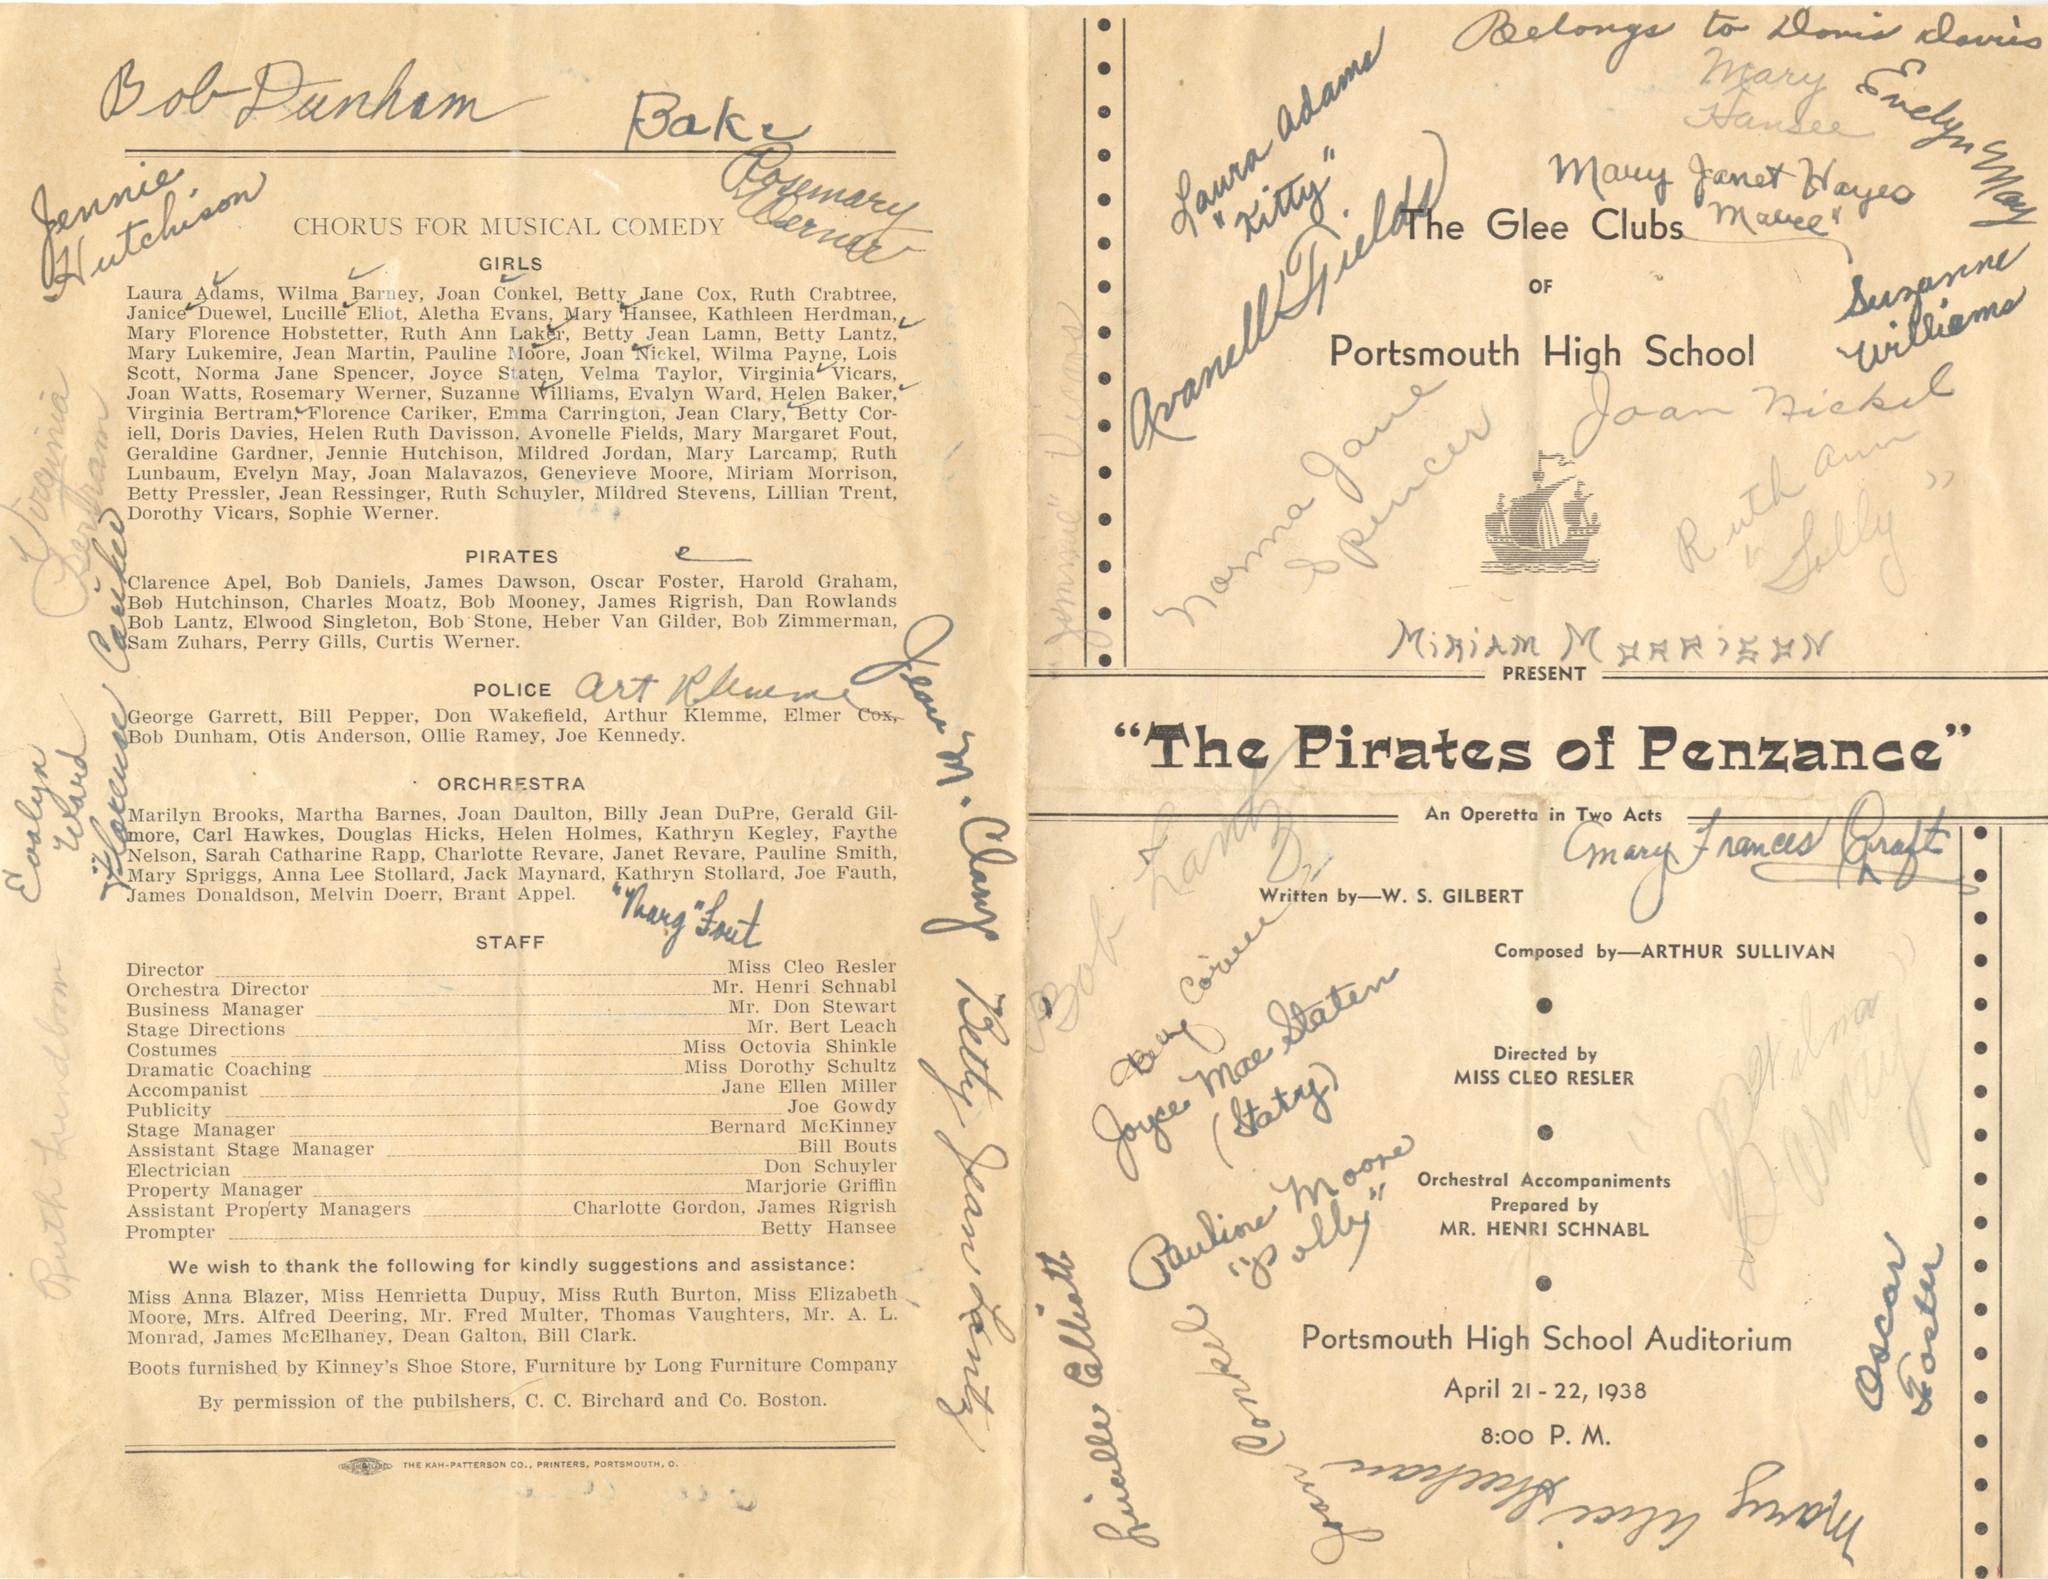 Bob Dunham
Bake
Jennie
Hutchison
Rosemary
Werner
CHORUS FOR MUSICAL COMEDY
GIRLS
Laura Adams, Wilma Barney, Joan Conkel, Betty Jane Cox, Ruth Crabtree,
Janice Duewel, Lucille Eliot, Aletha Evans, Mary Hansee, Kathleen Herdman,
Mary Florence Hobstetter, Ruth Ann Laker, Betty Jean Lamn, Betty Lantz,
Mary Lukemire, Jean Martin, Pauline Moore, Joan Nickel, Wilma Payne, Lois
Scott, Norma Jane Spencer, Joyce Staten, Velma Taylor, Virginia Vicars,
Joan Watts, Rosemary Werner, Suzanne Williams, Evalyn Ward, Helen Baker,
Virginia Bertram, Florence Cariker, Emma Carrington, Jean Clary, Betty Cor-
iell, Doris Davies, Helen Ruth Davisson, Avonelle Fields, Mary Margaret Fout,
Geraldine Gardner, Jennie Hutchison, Mildred Jordan, Mary Larcamp, Ruth
Lunbaum, Evelyn May, Joan Malavazos, Genevieve Moore, Miriam Morrison,
Betty Pressler, Jean Ressinger, Ruth Schuyler, Mildred Stevens, Lillian Trent,
Dorothy Vicars, Sophie Werner.
Virginia
Bertram
PIRATES
Clarence Apel, Bob Daniels, James Dawson, Oscar Foster, Harold Graham,
Bob Hutchinson, Charles Moatz, Bob Mooney, James Rigrish, Dan Rowlands
Bob Lantz, Elwood Singleton, Bob Stone, Heber Van Gilder, Bob Zimmerman,
Sam Zuhars, Perry Gills, Curtis Werner.
POLICE
Art Klemme
George Garrett, Bill Pepper, Don Wakefield, Arthur Klemme, Elmer Cox,
Bob Dunham, Otis Anderson, Ollie Ramey, Joe Kennedy.
Evalyn
Ward
ORCHRESTRA
Marilyn Brooks, Martha Barnes, Joan Daulton, Billy Jean DuPre, Gerald Gil-
more, Carl Hawkes, Douglas Hicks, Helen Holmes, Kathryn Kegley, Faythe
Nelson, Sarah Catharine Rapp, Charlotte Revare, Janet Revare, Pauline Smith,
Mary Spriggs, Anna Lee Stollard, Jack Maynard, Kathryn Stollard, Joe Fauth,
James Donaldson, Melvin Doerr, Brant Appel.
"Marg" Fout
STAFF
Director Miss Cleo Resler
Orchestra Director Mr. Henri Schnabl
Business Manager Mr. Don Stewart
Stage Directions Mr. Bert Leach
Costumes Miss Octovia Shinkle
Dramatic Coaching Miss Dorothy Schultz
Accompanist Jane Ellen Miller
Publicity Joe Gowdy
Stage Manager Bernard McKinney
Assistant Stage Manager Bill Bouts
Electrician Don Schuyler
Property Manager Marjorie Griffin
Assistant Property Managers Charlotte Gordon, James Rigrish
Prompter Betty Hansee
Ruth Lundbom
Betty Jean Lantz
We wish to thank the following for kindly suggestions and assistance:
Miss Anna Blazer, Miss Henrietta Dupuy, Miss Ruth Burton, Miss Elizabeth
Moore, Mrs. Alfred Deering, Mr. Fred Multer, Thomas Vaughters, Mr. A. L.
Monrad, James McElhaney, Dean Galton, Bill Clark.
Boots furnished by Kinney's Shoe Store, Furniture by Long Furniture Company
By permission of the pubilshers, C. C. Birchard and Co. Boston.
THE KAH-PATTERSON CO., PRINTERS, PORTSMOUTH, O.
Belongs to Doris Davies
Mary
Hansee
Evelyn May
Laura Adams
"Kitty"
Mary Janet Hayes
Avanell Fields
The Glee Clubs
OF
Portsmouth High School
Suzanne
Williams
"Jimmie" Vicars
Norma Jane
Spencer
Joan Nickel
Ruth Ann
"Lolly"
MIRIAM MORRISON
PRESENT
"The Pirates of Penzance"
An Operetta in Two Acts
Mary Frances Craft
Bob Lantz
Written by—W. S. GILBERT
Composed by—ARTHUR SULLIVAN
Joyce Mae Staten
(Staty)
Wilma
Barney
Directed by
MISS CLEO RESLER
Pauline Moore
"Polly"
Orchestral Accompaniments
Prepared by
MR. HENRI SCHNABL
Oscar
Foster
Lucille Elliott
Joan Conkel
Portsmouth High School Auditorium
April 21 - 22, 1938
8:00 P. M.
Mary Alice